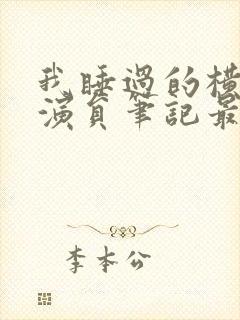 我睡過的橫
演員筆記最
李本公